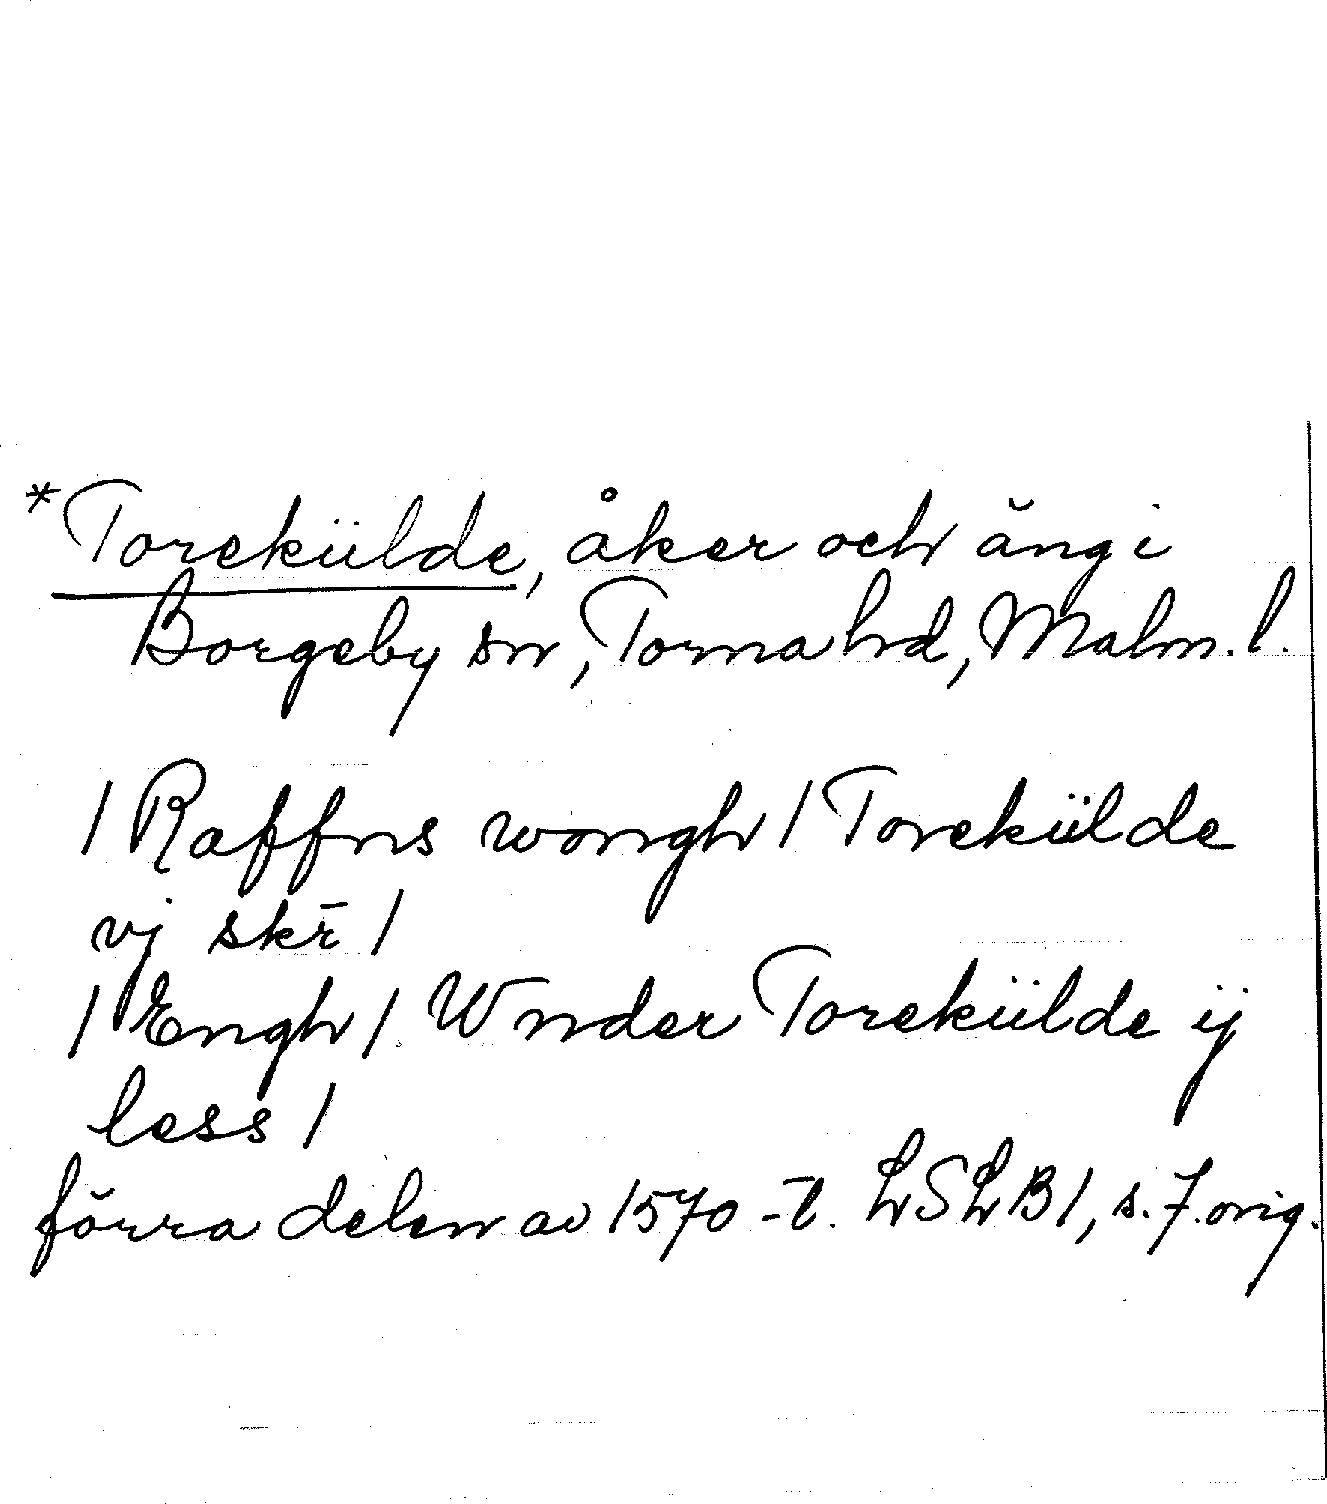 *Torekülde, åker och äng i
Borgeby sn, Torna hd, Malm. l.
/ Raffns wongh / Torekülde
vj skr̄ /
/ Engh / Wnder Torekülde ij
less /
förra delen av 1570-t. LSLB1, s. 7. orig.